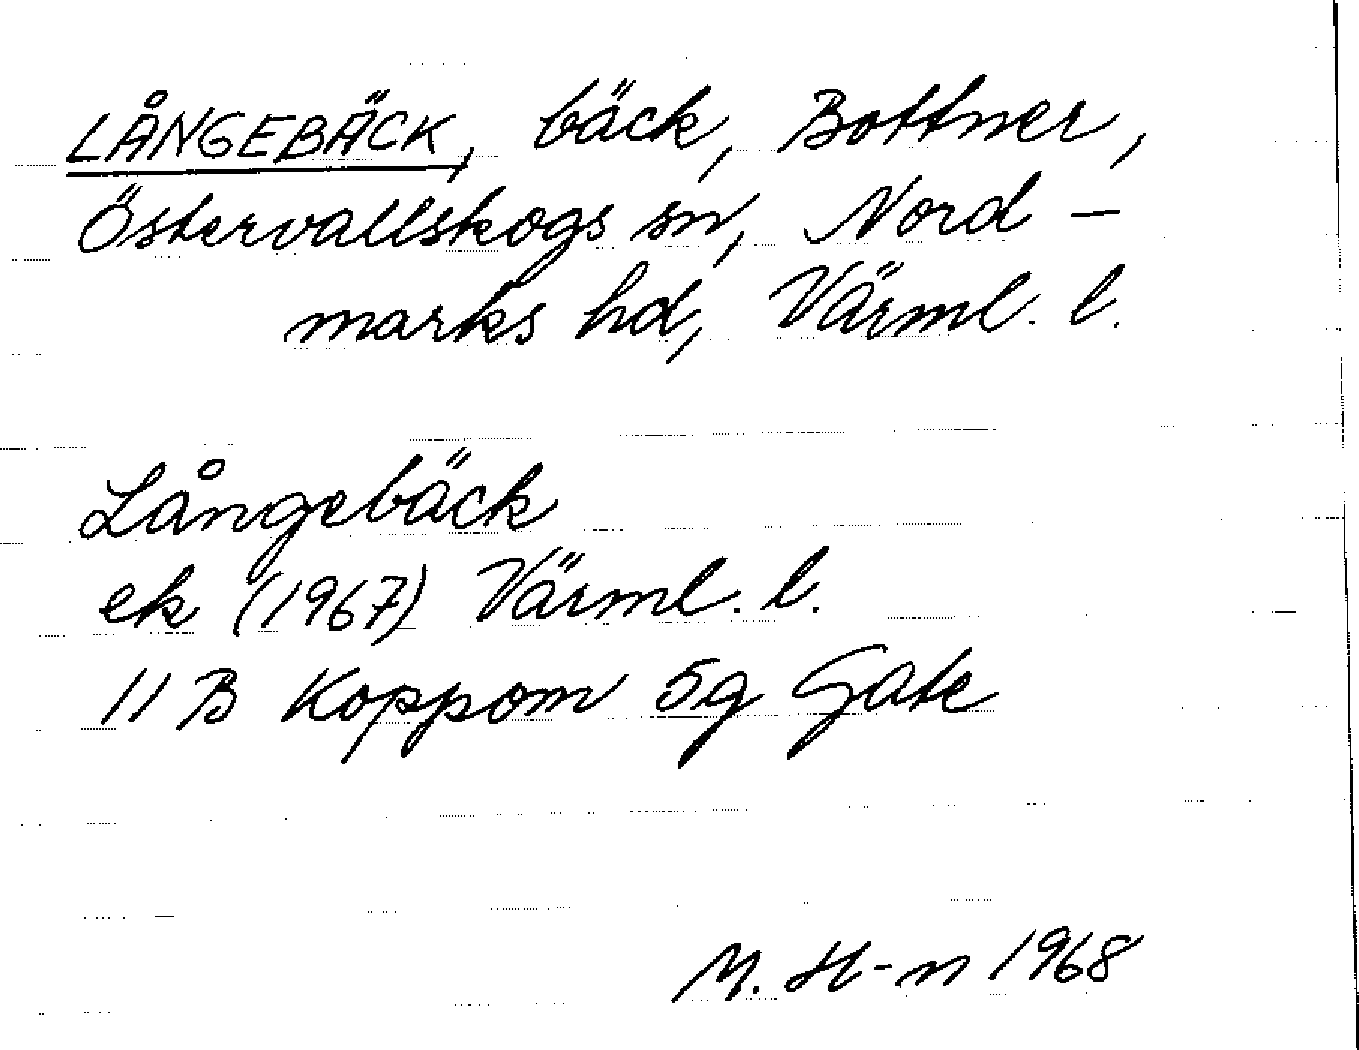 LÅNGEBÄCK, bäck, Bottner,
Östervallskogs sn, Nord-
marks hd, Värml. l.
Långebäck
ek (1967) Värml. l.
11 B Koppom 5g Gate
M. H-n 1968